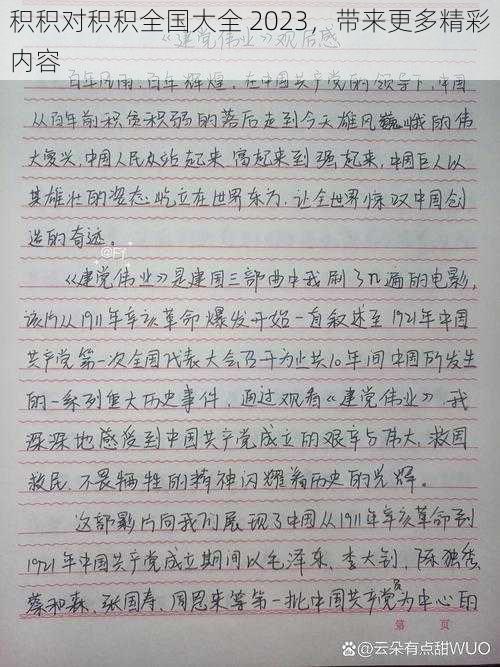 积积对积积全国大全 2023，带来更多精彩
内容
《建党伟业》观后感
百年风雨，百年辉煌，在中国共产党的领导下，中国
从百年前积贫积弱的落后走到今天雄风巍峨的伟
大复兴，中国人民从站起来，富起来到强起来，中国巨人以
其雄壮的姿态屹立在世界东方，让全世界惊叹中国创
造的奇迹。
《建党伟业》是建国三部曲中我刷了n遍的电影，
该片从1911年辛亥革命爆发开始一直叙述至1921年中国
共产党第一次全国代表大会召开为止共10年间中国所发生
的一系列重大历史事件，通过观看《建党伟业》，我
深深地感受到中国共产党成立的艰辛与伟大，救国
救民，不畏牺牲的精神闪耀着历史的光辉。
这部影片向我们展现了中国从1911年辛亥革命到
1921年中国共产党成立期间以毛泽东，李大钊，陈独秀，
蔡和森，张国焘，周恩来等第一批中国共产党员为中心的
第 页
@云朵有点甜WUO